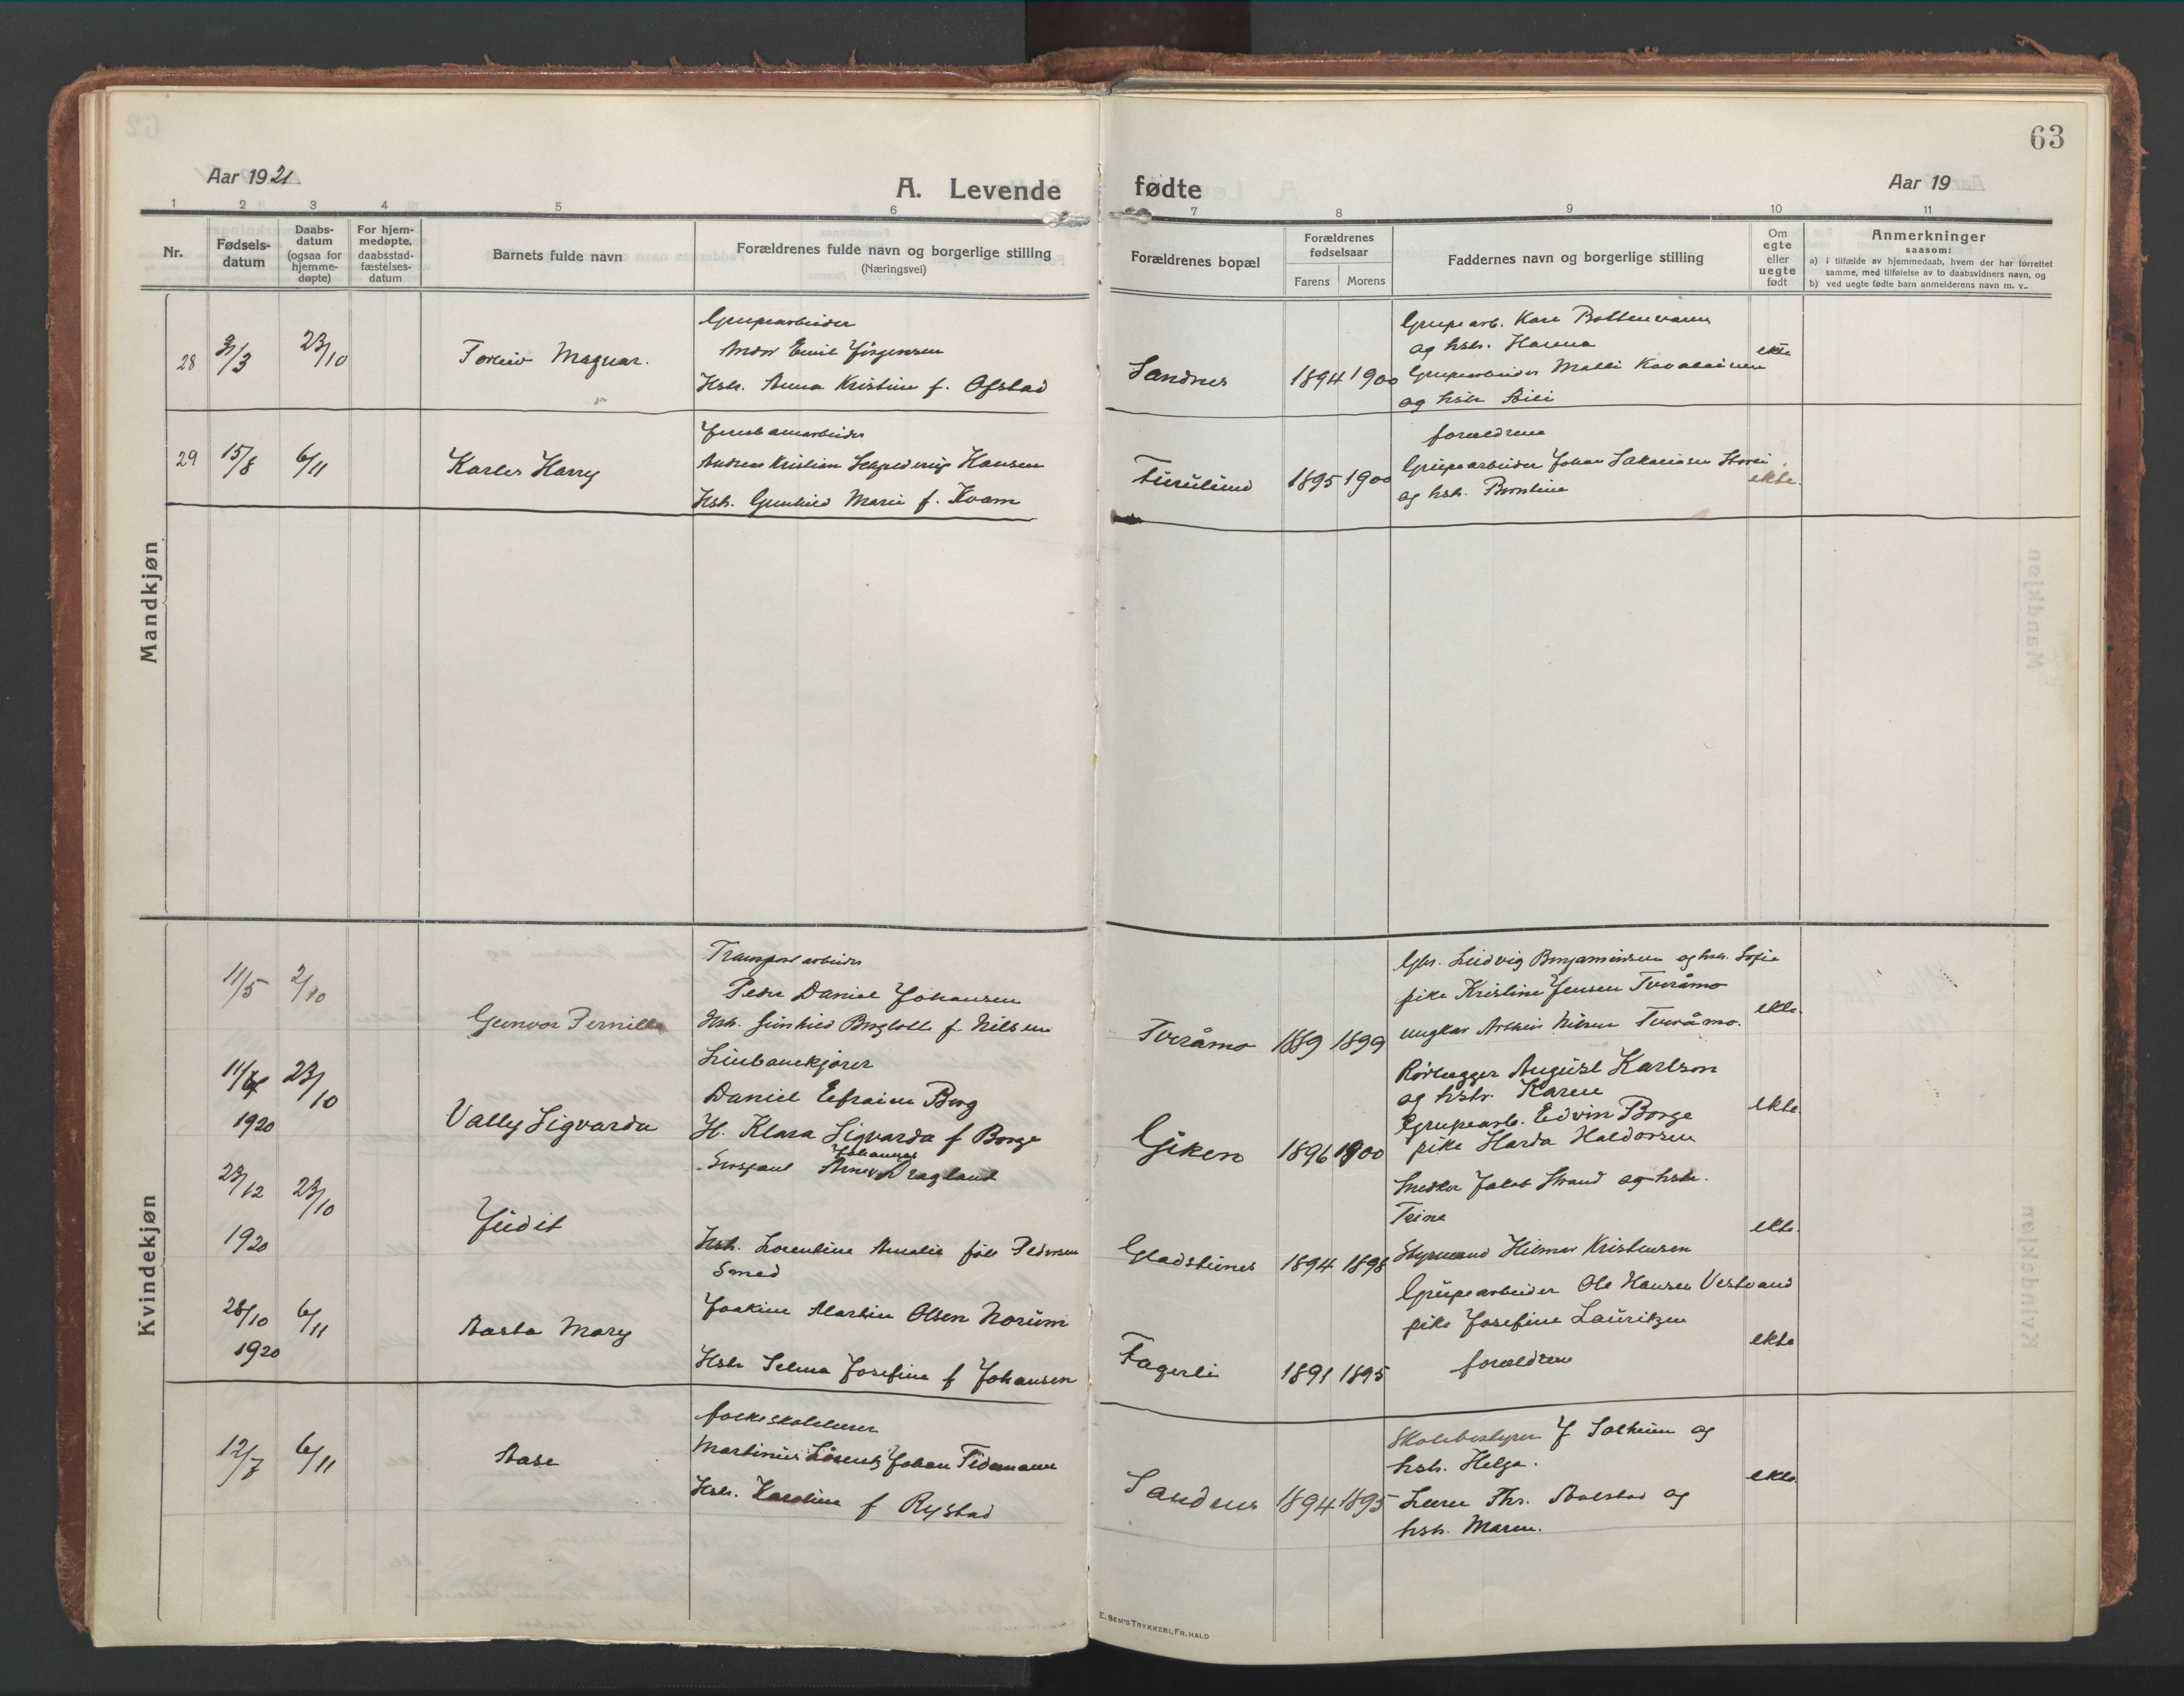 63
Aar 1921
A. Levende fødte
Aar 19
1 2 3 4 5 6 7 8 9 10 11
Nr.
Fødsels-
datum
Daabs-
datum
(ogsaa for
hjemme-
døpte)
For hjem-
medøpte,
daabsstad-
fæstelses-
datum
Barnets fulde navn
Forældrenes fulde navn og borgerlige stilling
(Næringsvei)
Forældrenes bopæl
Forældrenes
fødselsaar
Farens Morens
Faddernes navn og borgerlige stilling
Om
egte
eller
uegte
født
Anmerkninger
saasom:
a) i tilfælde av hjemmedaab, hvem der har forrettet
samme, med tilføielse av to daabsvidners navn, og
b) ved uegte fødte barn anmelderens navn m. v..
Mandkjøn
28 31/3 23/10
Magnar.
Grupearbeider
Emil Jørgensen
Hstr. Anna Kristine f. Ofstad
Sandnes 1894 1900
Grupearb. Kare
og hstr. Hanna
Grupearbeider Matti
og hstr
ekte
29 15/8 6/11
Karles Harry
Andreas Kristian Hansen
Hstr. Gunhild Marie f. Kvam
Furulund 1895 1900
forældrene
Grupearbeider Johan
og hstr.
ekte.
Kvindekjøn
11/5 2/10
Gunvor Pernille
Transportarbeider
Peder Daniel Johansen
Hstr. f. Nilsen
Tveråmo 1889 1899
Gbr. Ludvig Benjaminsen og hstr. Sofie
pike Kristine Jensen Tveråmo
ungkar Nilsen Tveråmo.
ekte.
11/6 23/10
1920
Vally Sigvarda
Linbanekjører
Daniel Efraim Berg
H. Klara Sigvarda f Borge
Giken 1896 1900
Rørlegger August Karlson
og hstr. Karen
Grupearb. Edvin Borge
pike Harda Haldorsen
ekte
23/12 23/10
1920
Judit
Johannes
Dragland
Hstr. Lorentine Amalie født Pedersen
1894 1898
Snedker Jakob Strand og hstr.
Trine
Styrmand Hilmar Kristensen
ekte.
28/10 6/11
1920
Aasta Mary
Smed
Joakim Martin Olsen Norum
Hstr Selma Josefine f Johansen
Fagerli 1891 1895
Grupearbeider Ole Hansen Vestvand
pike Josefine Lauritzen
forældrene
ekte
12/7 6/11
Aase
folkeskolelærer
Martinus Lorentz Johan Tidemann
Hstr. Karoline f Rystad
Sandnes 1894 1895
Skolebestyrer J Solheim og
hstr. Helga.
Lærer Thr. og
hstr. Maren.
ekte
E. SEM'S TRYKKERI, FR.HALD